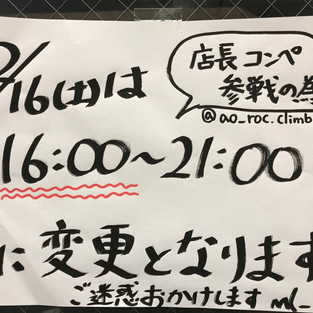 /16(土)は
店長 コンペ
参戦の為
@ao_roc.climb
16:00～21:00
に 変更となります
ご迷惑おかけします m(_